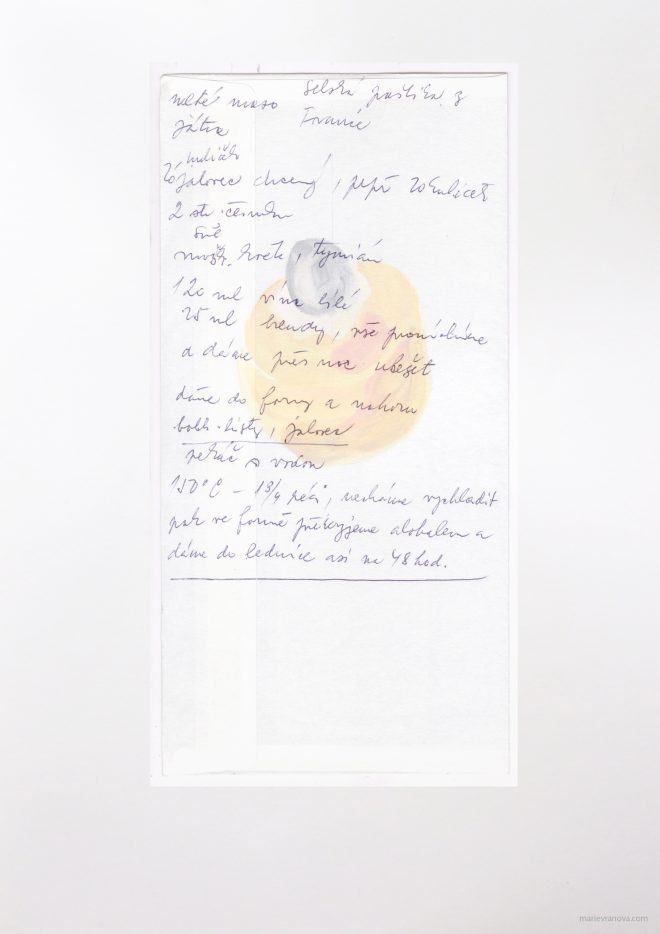 Selská paštika z
Francie
mleté maso
játra
jalovec drcený, pepř 20 kuliček
2 str. česneku
sůl
mušk. květ, tymián
120 ml vína bílé
25 ml brendy, vše promícháme
a dáme přes noc uležet
dáme do formy a nahoru
bobk. listy, jalovec
pekáč s vodou
150°C – 1 3/4 , necháme vychladit
pak ve formě přikryjeme alobalem a
dáme do lednice asi na 48 hod.
marievranova.com